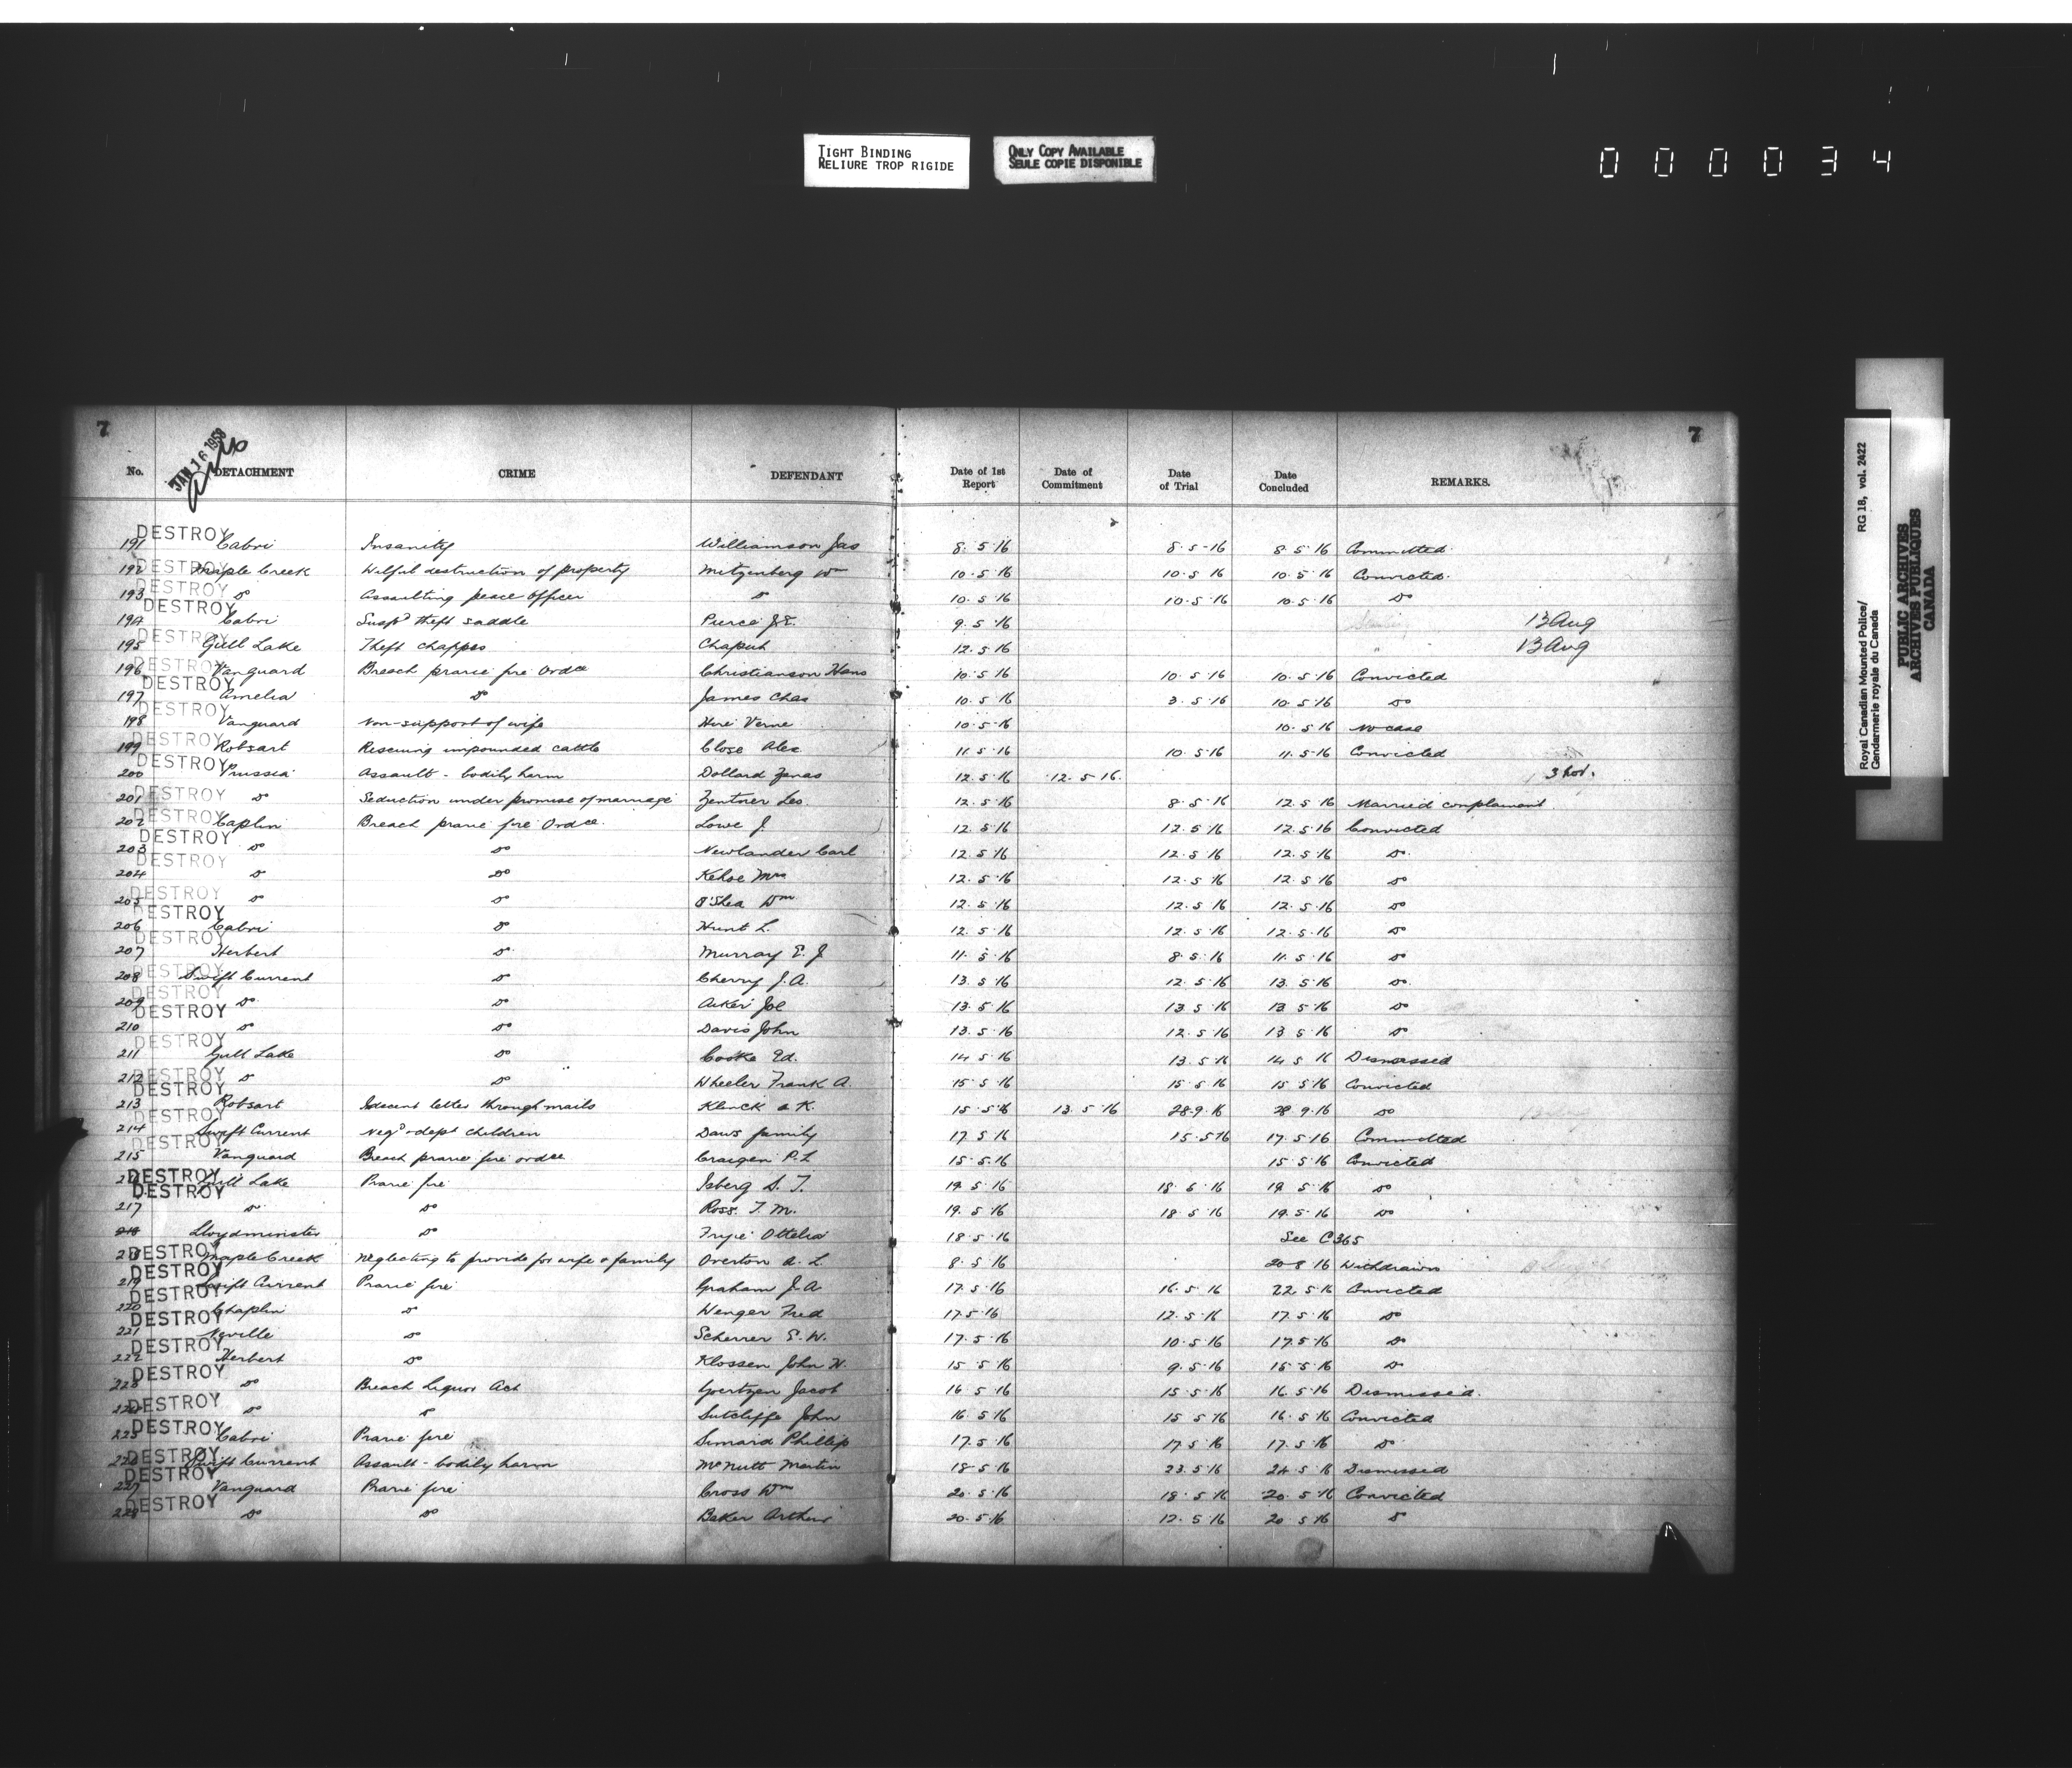 TIGHT BINDING
RELIURE TROP RIGIDE
ONLY COPY AVAILABLE
SEULE COPIE DISPONIBLE
000034
Royal Canadian Mounted Police/ RG 18, vol. 2422
Gendarmerie royale du Canada
PUBLIC ARCHIVES
ARCHIVES PUBLIQUES
CANADA
7 7
JAN 16 1958
No. DETACHMENT CRIME DEFENDANT Date of 1st Report Date of Commitment Date of Trial Date Concluded REMARKS.
191 DESTROY Cabri Insanity Williamson Jas 8.5.16 8.5-16 8.5.16 Committed
192 DESTROY Maple Creek Wilful destruction of property Metzenberg Wm 10.5.16 10.5.16 10.5.16 Convicted.
193 DESTROY Do Assaulting peace officer Do 10.5.16 10.5.16 10.5.16 Do
194 DESTROY Cabri Suspd theft saddle Pierce J.E. 9.5.16 13 Aug
195 DESTROY Gull Lake Theft chappes 12.5.16 13 Aug
196 DESTROY Vanguard Breach prarie fire Ordce Christianson Hans 10.5.16 10.5.16 10.5.16 Convicted
197 DESTROY Amelia Do James Chas 10.5.16 3.5.16 10.5.16 Do
198 DESTROY Vanguard Non-support of wife Verne 10.5.16 10.5.16 No case
199 DESTROY Robsart Rescuing impounded cattle Close Alex 11.5.16 10.5.16 11.5.16 Convicted
200 DESTROY Prussia Assault - bodily harm Dollard Zenas 12.5.16 12.5.16. 3 Nov.
201 DESTROY Do Seduction under promise of marriage Zentner Leo 12.5.16 8.5.16 12.5.16 Married complainant
202 DESTROY Caplin Breach prarie fire Ordce. Lowe J. 12.5.16 12.5.16 12.5.16 Convicted
203 DESTROY Do Do Newlander Carl 12.5.16 12.5.16 12.5.16 Do.
204 DESTROY Do Do Kehoe 12.5.16 12.5.16 12.5.16 Do
205 DESTROY Do Do O'Shea Wm 12.5.16 12.5.16 12.5.16 Do
206 DESTROY Cabri Do Hunt L. 12.5.16 12.5.16 12.5.16 Do
207 DESTROY Herbert Do Murray E. J 11.5.16 8.5.16 11.5.16 Do
208 DESTROY Swift Current Do Cherry J.A. 13.5.16 12.5.16 13.5.16 Do.
209 DESTROY Do Do Acker Joe 13.5.16 13.5.16 13.5.16 Do
210 DESTROY Do Do Davis John 13.5.16 12.5.16 13.5.16 Do
211 DESTROY Gull Lake Do Cooke Ed. 14.5.16 13.5.16 14.5.16 Dismissed
212 DESTROY Do Do Wheeler Frank A. 15.5.16 15.5.16 15.5.16 Convicted
213 DESTROY Robsart Indecent letter through mails Klinck A K. 15.5.16 13.5.16 28.9.16 28.9.16 Do
214 DESTROY Swift Current Negd & dept children Daws family 17.5.16 15.5.16 17.5.16 Committed
215 DESTROY Vanguard Breach prarie fire ordce Craigen P.L 15.5.16 15.5.16 Convicted
DESTROY Gull Lake Prarie fire Isberg S. T. 19.5.16 18.5.16 19.5.16 Do
217 DESTROY Do Do Ross. T. M. 19.5.16 18.5.16 19.5.16 Do
218 Lloydminster Do Ottelia 18.5.16 See C365
218 DESTROY Maple Creek Neglecting to provide for wife & family Overton A. L. 8.5.16 20.8.16 Withdrawn
219 DESTROY Swift Current Prarie fire Graham J.A. 17.5.16 16.5.16 22.5.16 Convicted
220 DESTROY Chaplin Do Wenger Fred 17.5.16 12.5.16 17.5.16 Do
221 DESTROY Neville Do Scherrer E.W. 17.5.16 10.5.16 17.5.16 Do
222 DESTROY Herbert Do Klossen John W. 15.5.16 9.5.16 15.5.16 Do
223 DESTROY Do Breach Liquor Act Goertzen Jacob 16.5.16 15.5.16 16.5.16 Dismissed.
224 DESTROY Do Do Sutcliffe John 16.5.16 15.5.16 16.5.16 Convicted
225 DESTROY Cabri Prarie fire Simard Phillip 17.5.16 17.5.16 17.5.16 Do
226 DESTROY Swift Current Assault - bodily harm McNutt Martin 18.5.16 23.5.16 24.5.16 Dismissed
227 DESTROY Vanguard Prarie fire Cross Wm 20.5.16 18.5.16 20.5.16 Convicted
228 DESTROY Do Do Baker Arthur 20.5.16 12.5.16 20.5.16 Do